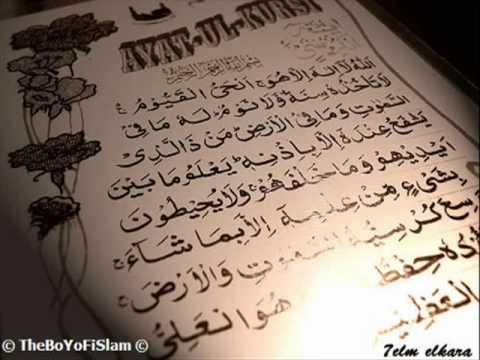 AYAT-UL-KURSI
بسم الله الرحمن الرحيم
اَللّٰهُ لَآ اِلٰهَ اِلَّا هُوَ اَلْحَىُّ الْقَيُّوْمُ ج
لَا تَأْخُذُهٗ سِنَةٌ وَّلَا نَوْمٌ لَهٗ مَا فِى
السَّمٰوٰتِ وَمَا فِى الْاَرْضِ مَنْ ذَا الَّذِىْ
يَشْفَعُ عِنْدَهٗٓ اِلَّا بِاِذْنِهٖ يَعْلَمُ مَا بَيْنَ
اَيْدِيْهِمْ وَمَا خَلْفَهُمْ وَلَا يُحِيْطُوْنَ
بِشَىْءٍ مِّنْ عِلْمِهٖٓ اِلَّا بِمَا شَآءَ ج
سِعَ كُرْسِيُّهُ السَّمٰوٰتِ وَالْاَرْضَ ج
ؤُدُهٗ حِفْظُ هُوَ الْعَلِىُّ
الْعَظِيْمُ
© TheBoYoFiSlam ©
7elm elkara